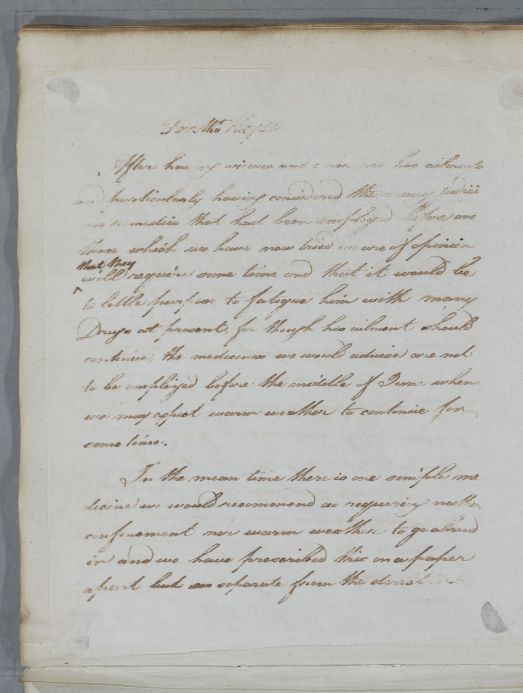 For Mr
After having viewed and his ailments
and particularly having considered the many
remedies that had been employed before and
those which we have now tried we are of opinion
that they
will require some time and that it would be
to little purpose to fatigue him with many
Drugs at present, for though his ailment should
continue, the medicines we would advise are not
to be employed before the middle of June when
we may expect warm weather to continue for
some time.
In the mean time there is one simple me
dicine we would recommend as requiring neither
confinement nor warm weather to go abroad
in and we have prescribed this on a paper
apart but as separate from the